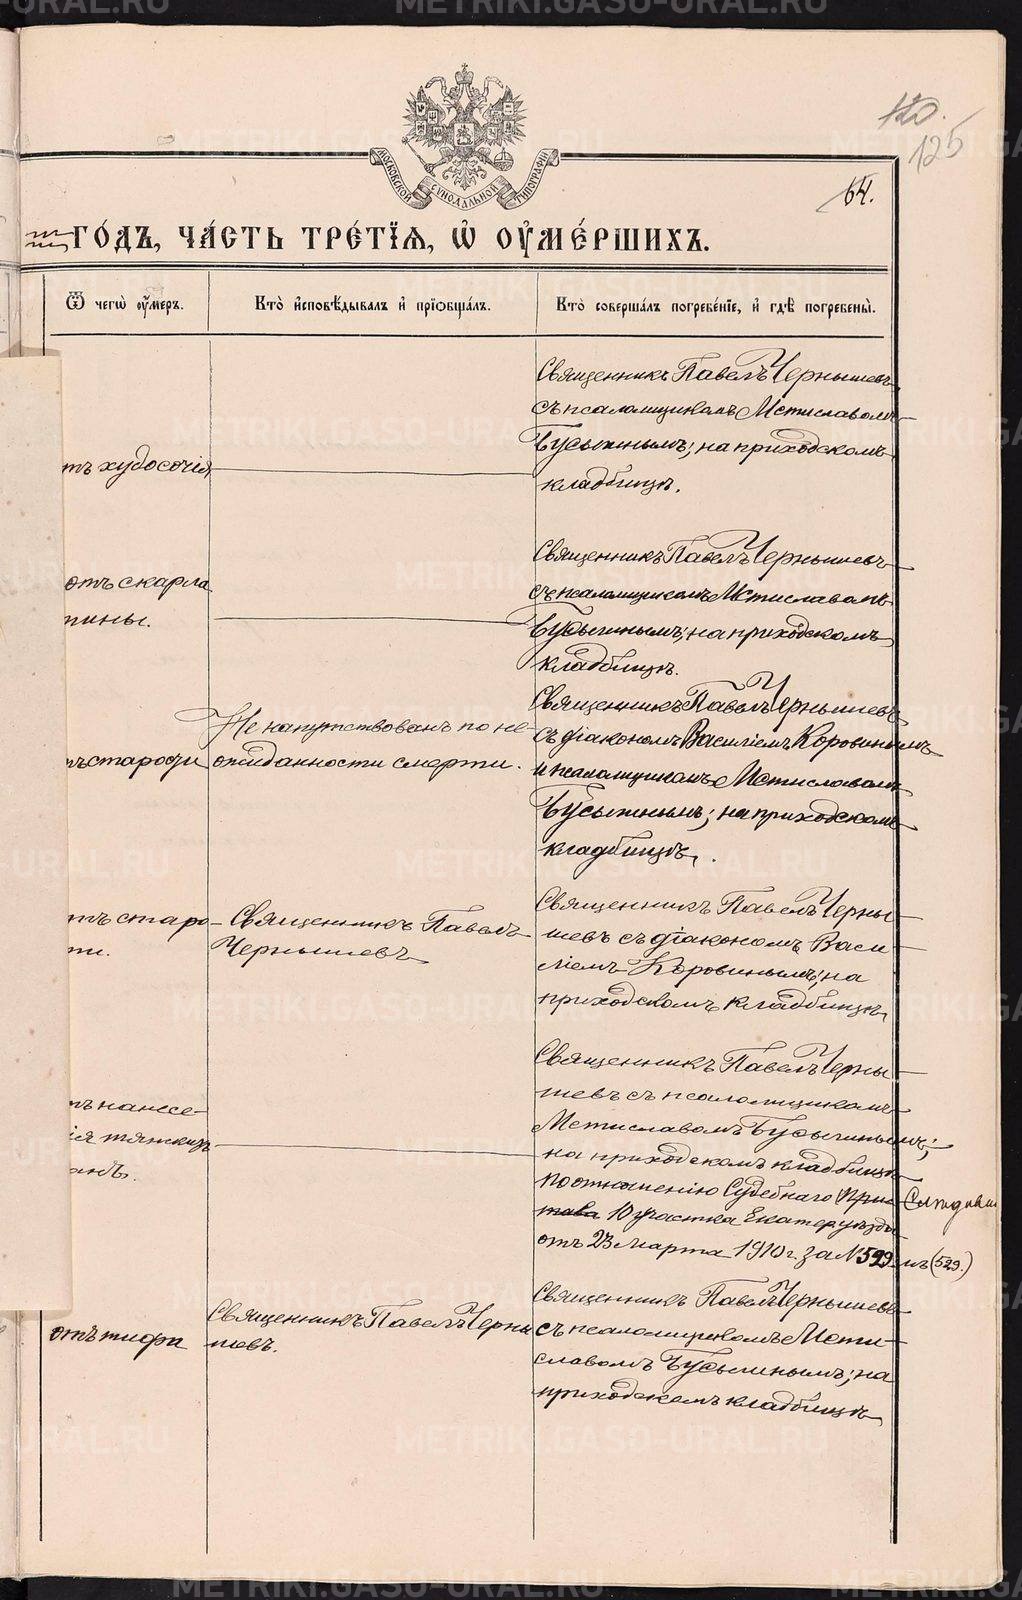 120.
125
64.
МОСКОВСКОЙ СѴНОДАЛЬНОЙ ТИПОГРАФІИ
ГО́ДЪ, ЧА́СТЬ ТРЕ́ТІѦ, Ѡ҆ ОУ҆МЕ́РШИХЪ.
Ѿ чегѡ̀ оу҆́меръ.
Кто̀ и҆сповѣ́дывалъ и҆ прїѻбща́лъ.
Кто̀ соверша́лъ погребе́нїе, и҆ гдѣ̀ погребены̀.
Священникъ Павелъ Чернышевъ
съ псаломщикомъ Мстиславомъ
Бусыгинымъ; на приходскомъ
кладбищѣ.
тъ худосочія
Священникъ Павелъ Чернышевъ
съ псаломщикомъ Мстиславомъ
Бусыгинымъ; на приходскомъ
кладбищѣ.
отъ скарла
тины.
Не напутствованъ по не-
ожиданности смерти.
тъ старости
Священникъ Павелъ Чернышевъ
съ діакономъ Василіемъ Коровинымъ
и псаломщикомъ Мстиславомъ
Бусыгинымъ; на приходскомъ
кладбищѣ.
тъ старо-
ти.
Священникъ Павелъ
Чернышевъ
Священникъ Павелъ Черны-
шевъ съ діакономъ Васи-
ліемъ Коровинымъ; на
приходскомъ кладбищѣ
тъ нанесе-
ія тяжкихъ
анъ.
Священникъ Павелъ Черны-
шевъ съ псаломщикомъ
Мстиславомъ Бусыгинымъ;
на приходскомъ кладбищѣ
по отношенію Судебнаго При-
става 10 участка Екатер. уѣзда
отъ 23 марта 1910 г. за № 529
(529.)
отъ тифа
Священникъ Павелъ Черны
шевъ.
Священникъ Павелъ Чернышевъ
съ псаломщикомъ Мсти-
славомъ Бусыгинымъ; на
приходскомъ кладбищѣ
METRIKI.GASO-URAL.RU